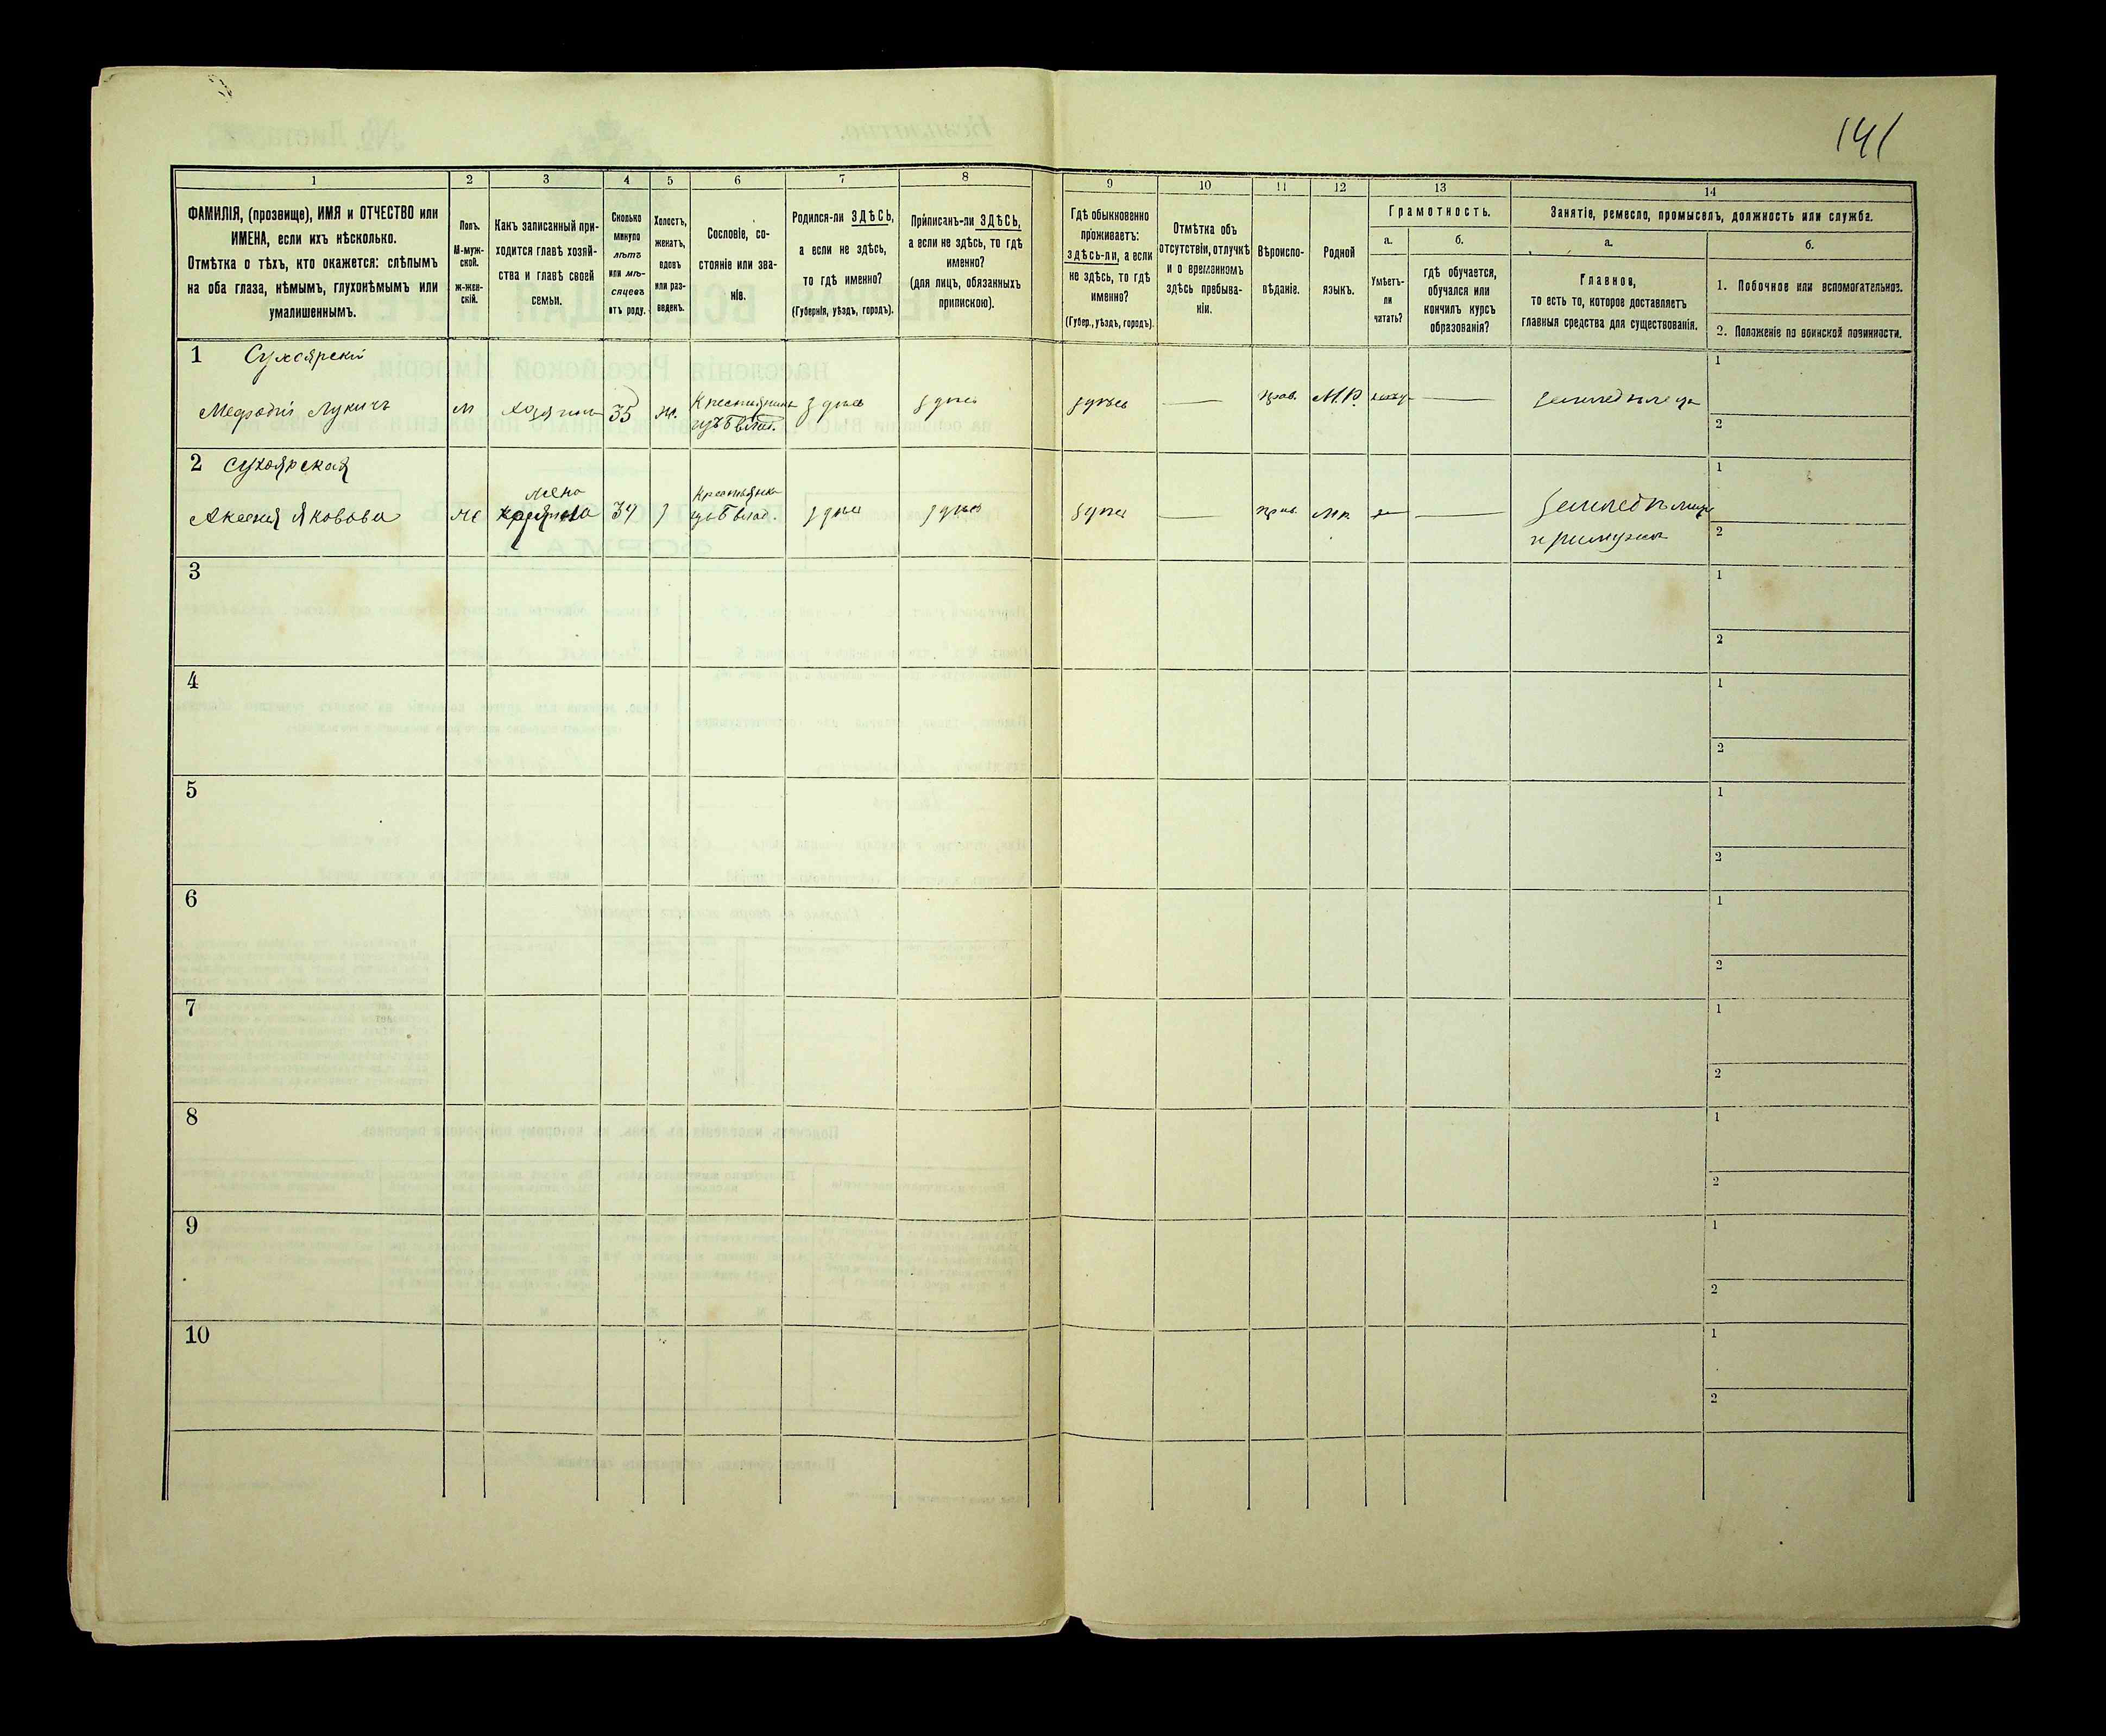 141
1
2
3
4
5
6
7
8
9
10
11
12
13
14
ФАМИЛІЯ, (прозвище), ИМЯ и ОТЧЕСТВО или
ИМЕНА, если ихъ нѣсколько.
Отмѣтка о тѣхъ, кто окажется: слѣпымъ
на оба глаза, нѣмымъ, глухонѣмымъ или
умалишеннымъ.
Полъ.
М-муж-
ской.
ж-жен-
скій.
Какъ записанный при-
ходится главѣ хозяй-
ства и главѣ своей
семьи.
Сколько
минуло
лѣтъ
или мѣ-
сяцевъ
отъ роду.
Холостъ,
женатъ,
вдовъ
или раз-
веденъ.
Сословіе, со-
стояніе или зва-
ніе.
Родился-ли ЗДѢСЬ,
а если не здѣсь,
то гдѣ именно?
(Губернія, уѣздъ, городъ).
Приписанъ-ли ЗДѢСЬ,
а если не здѣсь, то гдѣ
именно?
(для лицъ, обязанныхъ
припискою).
Гдѣ обыкновенно
проживаетъ:
здѣсь-ли, а если
не здѣсь, то гдѣ
именно?
(Губер., уѣздъ, городъ).
Отмѣтка объ
отсутствіи, отлучкѣ
и о временномъ
здѣсь пребыва-
ніи.
Вѣроиспо-
вѣданіе.
Родной
языкъ.
Грамотность.
а.
Умѣетъ-
ли
читать?
б.
гдѣ обучается,
обучался или
кончилъ курсъ
образованія?
Занятіе, ремесло, промыселъ, должность или служба.
а.
Главное,
то есть то, которое доставляетъ
главныя средства для существованія.
б.
1. Побочное или вспомогательное.
2. Положеніе по воинской повинности.
1 Сухоярскій
Мефодій Лукичъ м хозяинъ 35 ж. Крестьянинъ здѣсь здѣсь здѣсь — прав. М.Р. —
земледѣлецъ
1
2
2 Сухоярская
жена
Аксенія Яковова ж хозяина 34 з Крестьянка здѣсь здѣсь здѣсь — прав. М.р. —
1
2
3
1
2
4
1
2
5
1
2
6
1
2
7
1
2
8
1
2
9
1
2
10
1
2